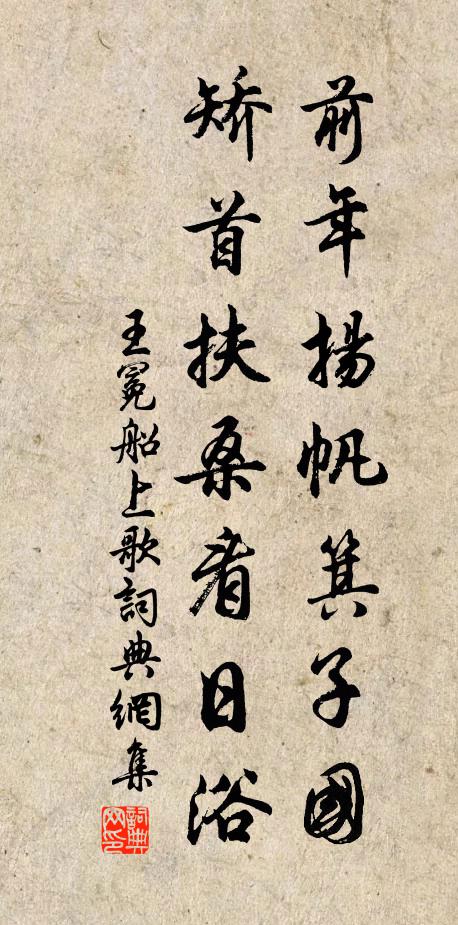 前年揚帆箕子國
矯首扶桑看日浴
王冕船上歌詞典網集
詞典網印